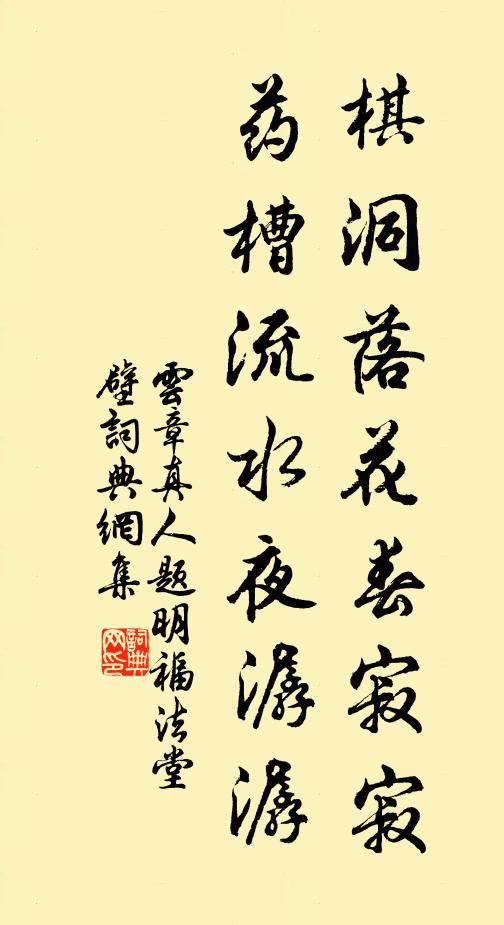 棋洞落花春寂寂
药槽流水夜潺潺
雲章真人题明福法堂
壁詞典網集
詞典
网印